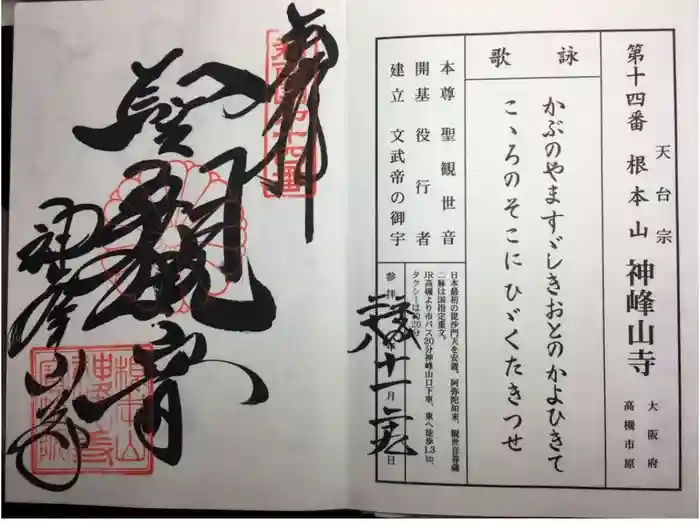 第十四番 天台宗 根本山 神峰山寺 大阪府高槻市原
詠歌
かぶのやますゞしきおとのかよひきて
こゝろのそこにひゞくたきつせ
本尊 聖観世音
開基 役行者
建立 文武帝の御宇
日本最初の毘沙門天を安置、阿弥陀如来、観世音菩薩
二躰は国指定重文。
JR高槻より市バス20分神峰山口下車、東へ徒歩1.3㎞、
タクシーは約20分
参拝 十一月 日
奉拝
聖観音
神峯山寺